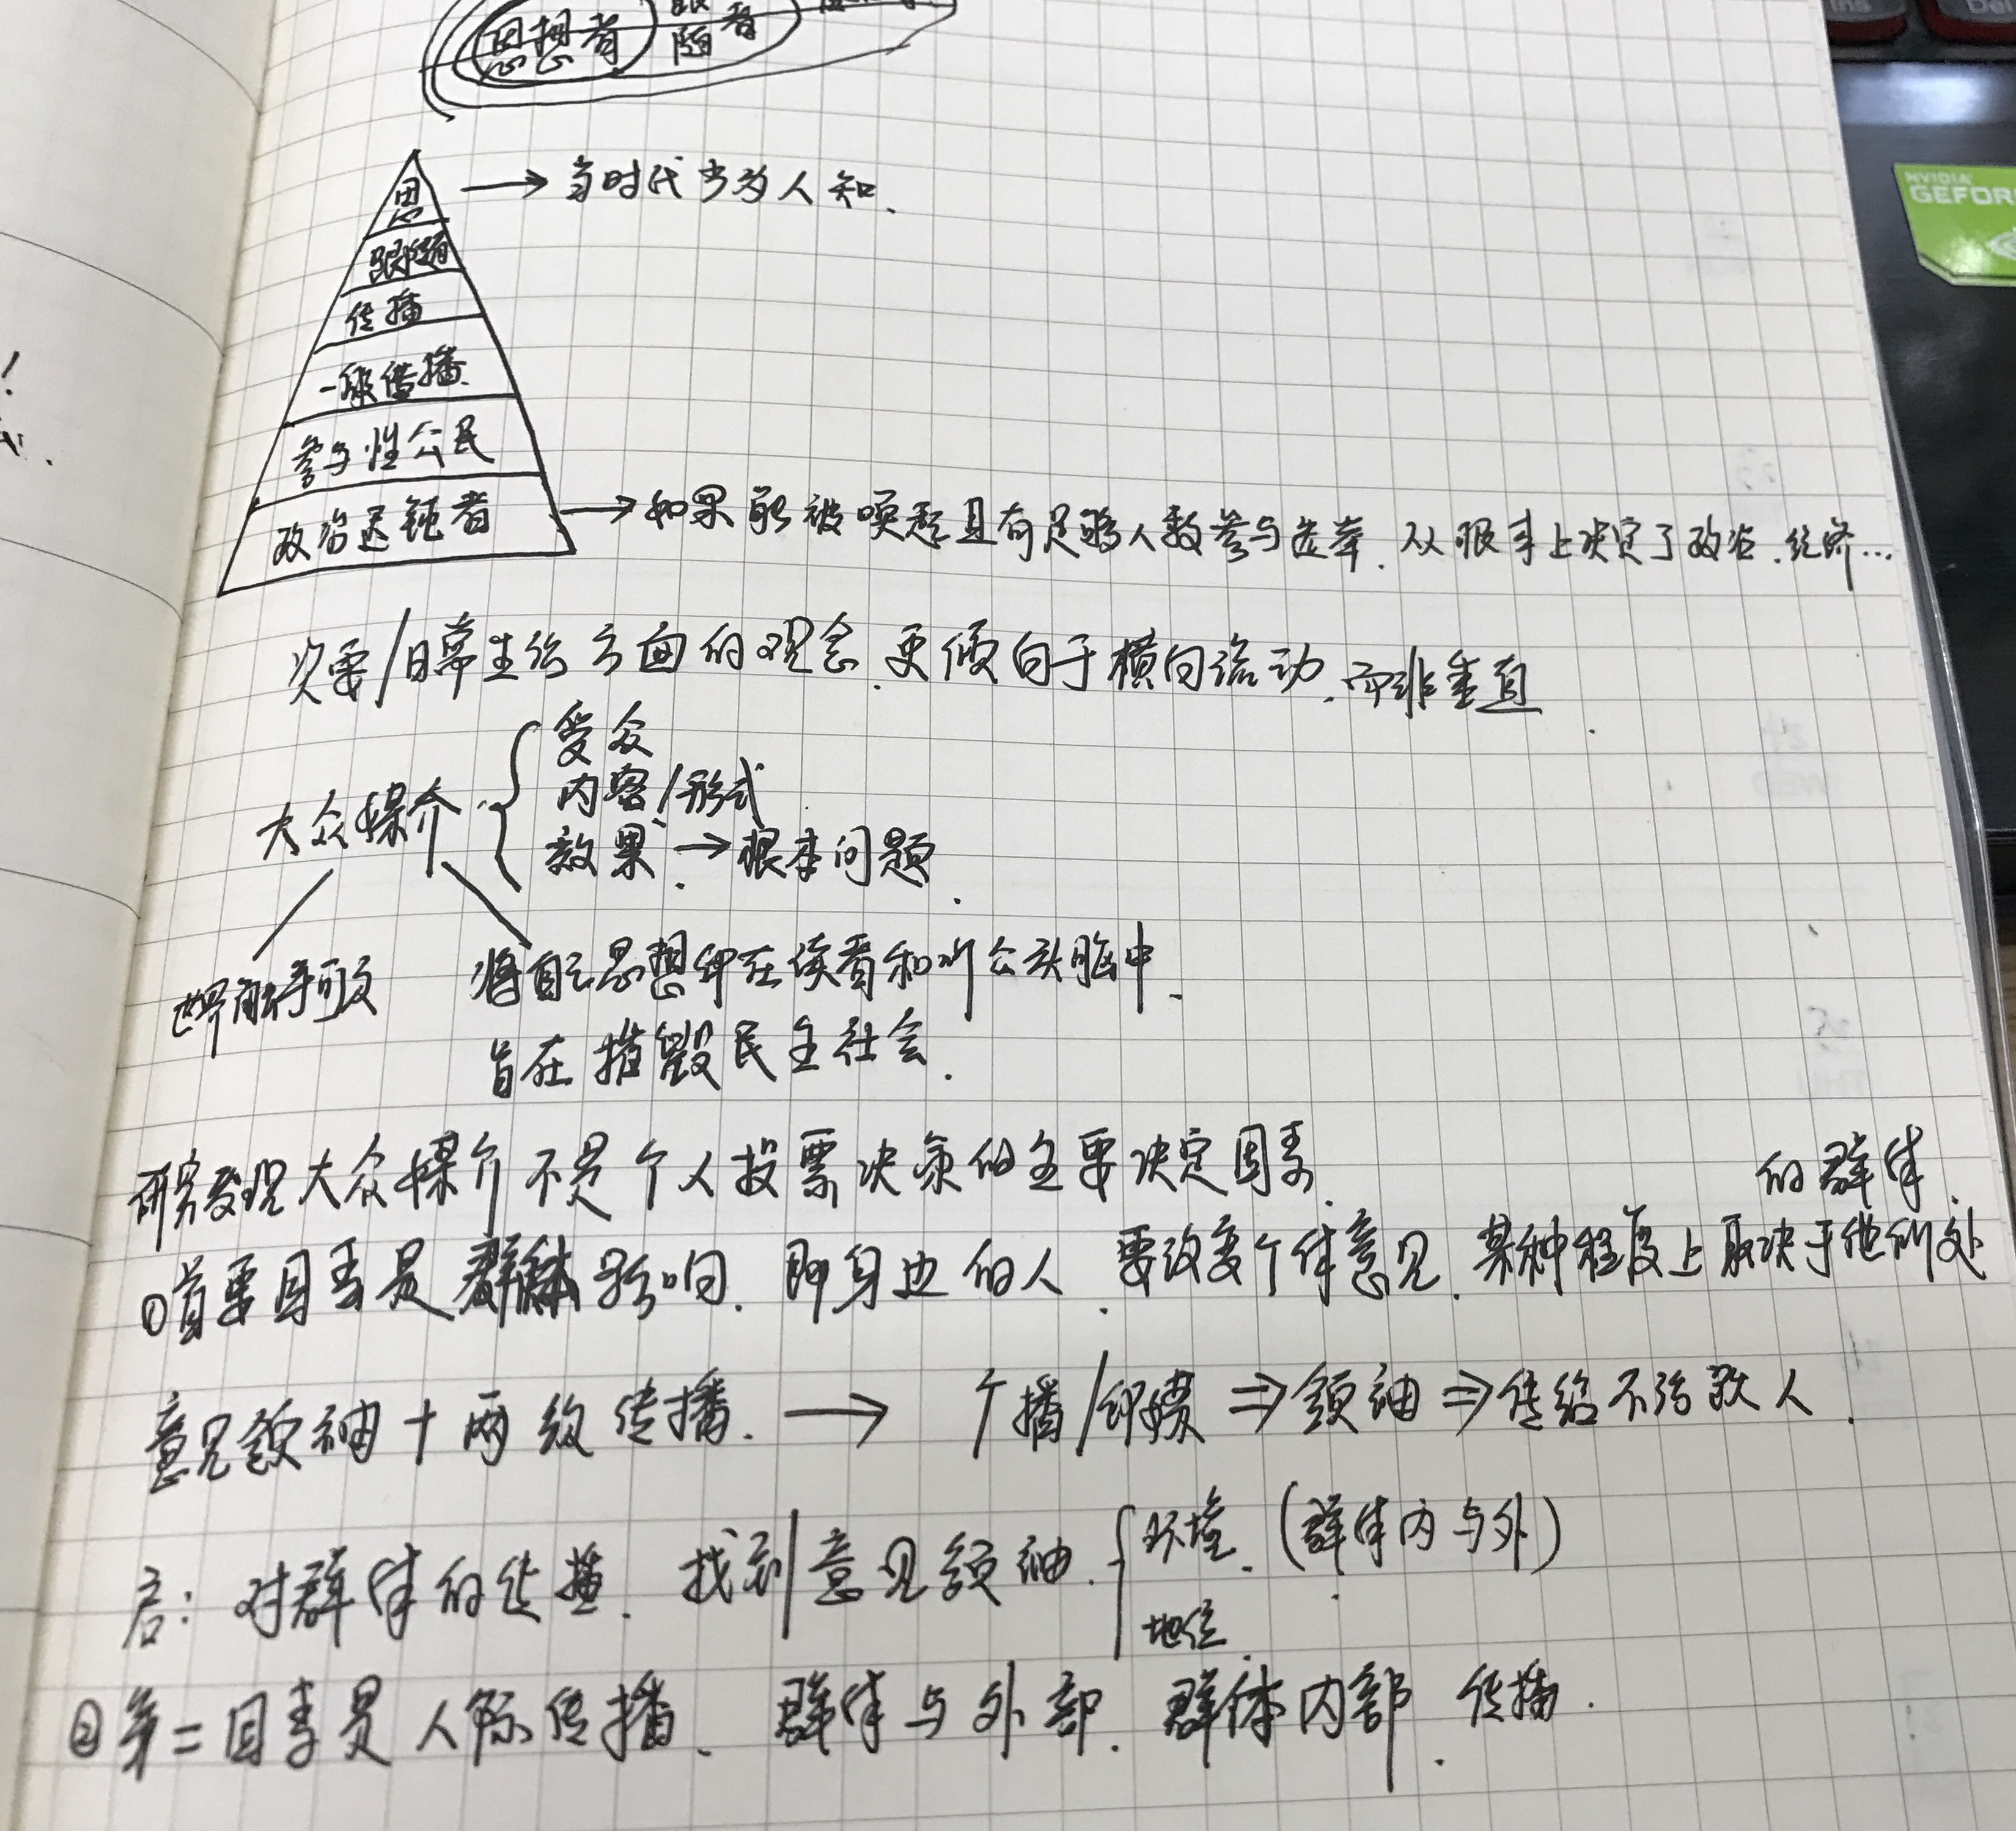 思想者
随者
思 → 当时代少为人知.
跟随者
传播
一般传播.
参与性公民
政治迟钝者 → 如果能被唤起且有足够人数参与选举. 从根本上决定了政治.经济…
次要/日常生活方面的观念.更倾向于横向流动.而非垂直.
受众
内容/形式
大众媒介
效果. → 根本问题.
将自己思想印在读者和听众头脑中.
旨在摧毁民主社会.
研究发现大众媒介不是个人投票决策的主要决定因素.
的群体.
①首要因素是群体影响. 即身边的人. 要改变个体意见. 某种程度上取决于他所处
意见领袖+两级传播. → 广播/印刷 ⇒ 领袖 ⇒ 传给不活跃人.
启: 对群体的传播. 找到意见领袖. 环境. (群体内与外).
地位.
②第二因素是人际传播、群体与外部. 群体内部. 传播.
NVIDIA
GEFOR
Ins
Del